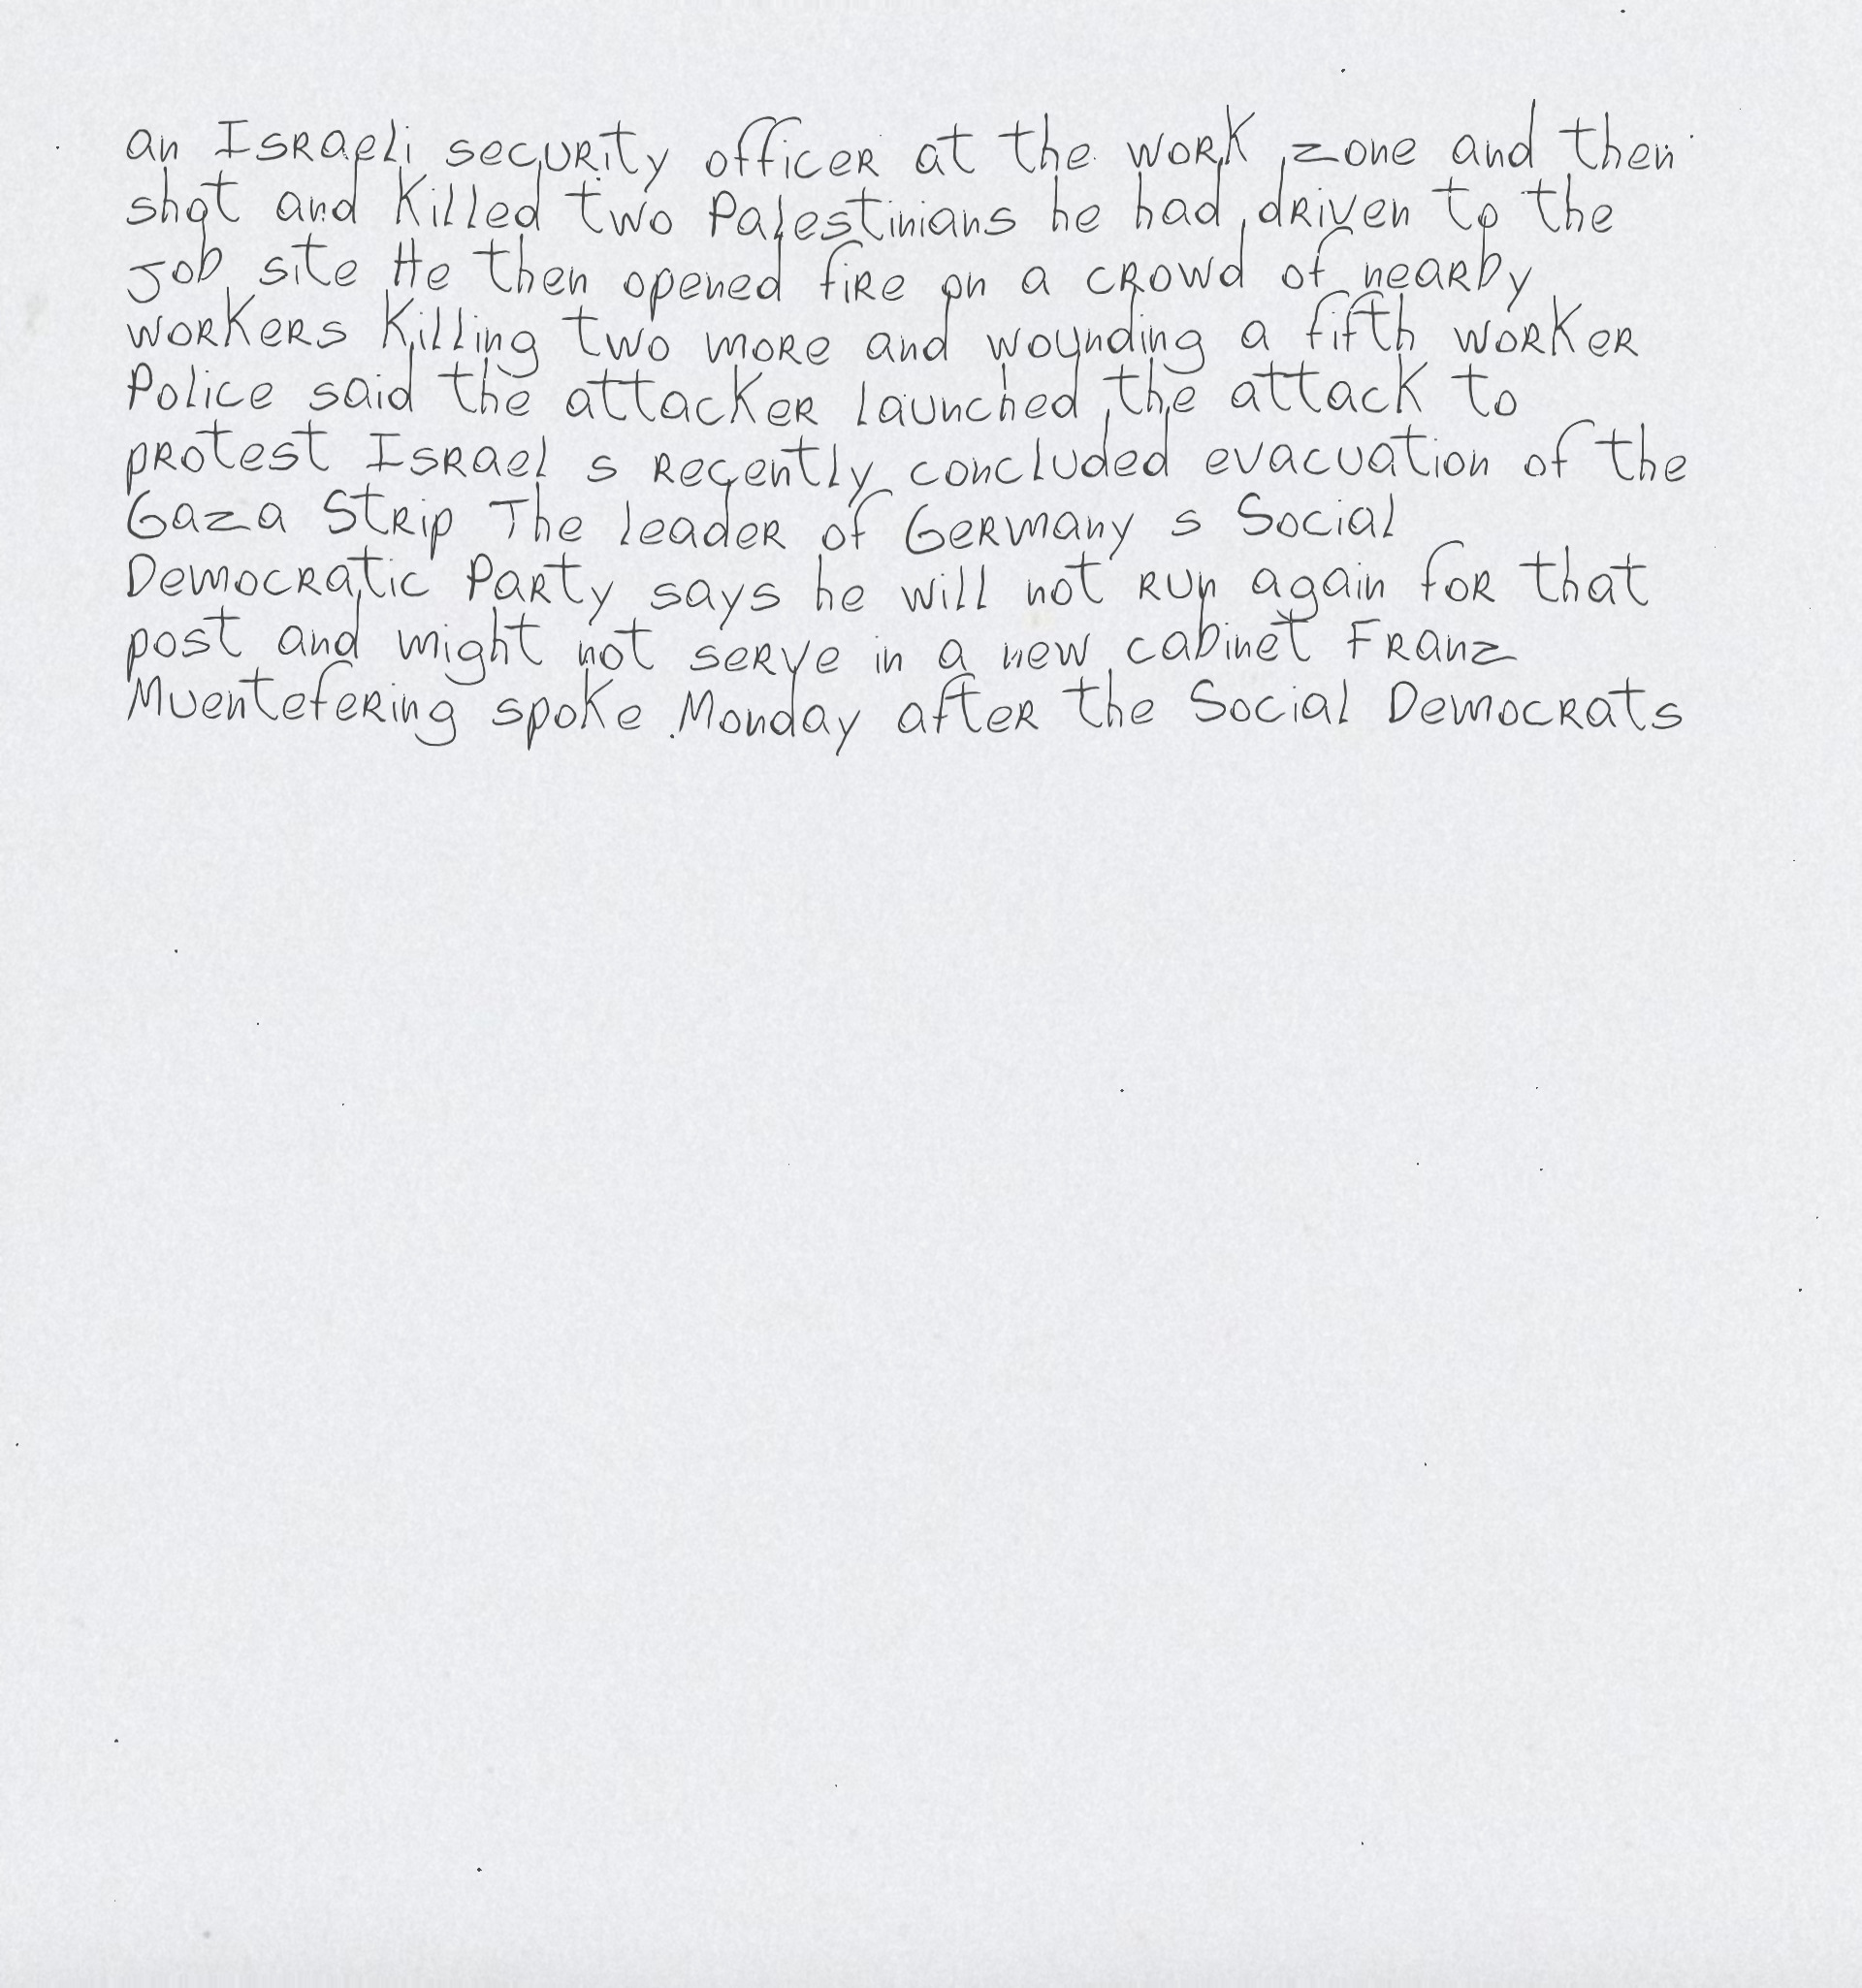 an Israeli security officer at the work zone and then
shot and killed two Palestinians he had driven to the
job site He then opened fire on a crowd of nearby
workers killing two more and wounding a fifth worker
Police said the attacker launched the attack to
protest Israel s recently concluded evacuation of the
Gaza Strip The leader of Germany s Social
Democratic Party says he will not run again for that
post and might not serve in a new cabinet Franz
Muentefering spoke Monday after the Social Democrats